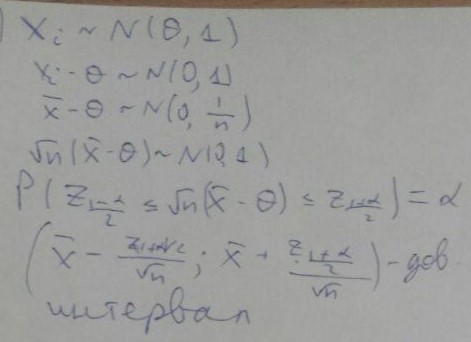 ) Xᵢ ~ N(θ, 1)
xᵢ - θ ~ N(0, 1)
x̄ - θ ~ N(0, 1/n)
√n(x̄ - θ) ~ N(0, 1)
P(Z_{(1-α)/2} ≤ √n(x̄ - θ) ≤ Z_{(1+α)/2}) = α
(x̄ - Z_{(1+α)/2}/√n ; x̄ + Z_{(1+α)/2}/√n) - дов.
интервал